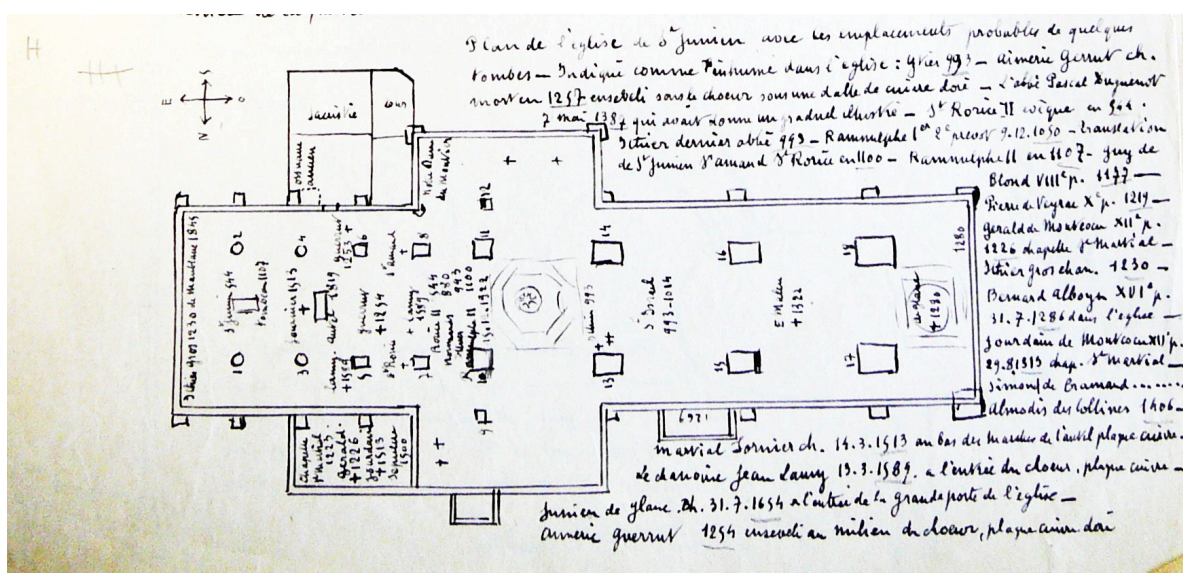 H
Plan de l'église de St Junien avec les emplacements probables de quelques
tombes — Indiqué comme inhumé dans l'église : Ytier 993 — aimeric Gerrut ch.
mort en 1257 enseveli sous le choeur sous une dalle de cuivre doré — L'abbé Pascal Huguenot
7 mai 1387 qui avait donné un graduel illustré — St Rorice II evêque en 544.
Ithier dernier abbé 993 — Rammulphe 1er 2e prevot 9.12.1050 — translation
de St Junien St amand St Rorice en 1100 — Rammulphe II en 1107 — Guy de
Blond VIIIe p. 1177 —
Pierre de Veyrac Xe p. 1219 —
Gerald de Montcocu XIIe p.
1226 chapelle St Martial —
Ithier gros chan. 1230 —
Bernard Alboyn XVIe p.
31.7.1286 dans l'église —
Jourdain de Montcocu XIIe p.
29.8.1313 chap. St Martial —
Simon de Cramaud ......
Almodis des Collines 1406 —
Martial Fornier ch. 14.3.1513 au bas des marches de l'autel plaque cuivre.
Le chanoine Jean Lamy 13.3.1589 a l'entrée du choeur, plaque cuivre —
Junien de Glane Ch. 31.7.1654 a l'entrée de la grande porte de l'église —
aimeric Guerrut 1254 enseveli au milieu du choeur, plaque cuivre doré
E S O N
sacristie
cour
Notre Dame
du Moutier
Ithier Gros 1230 de Maublanc 1845
St Junien 544
1107
Fournier 1513
1819
Lamy
+ 1589
guerrut
1253 +
guerrut
+ 1254
St Rorice
St amand
+ Lamy
1589
Rorice II 544
880
993
Rammulphe II 1100
Ithier 993
St Israel
993-1014
E Maleu
+ 1322
+ 1286
1280
chapelle
St Martial
1223
Gerald
+ 1226
Jourdain
+ 1313
Sepulcre
1500
1 2 3 4 5 6 7 8 9 10 11 12 13 14 15 16 17 18